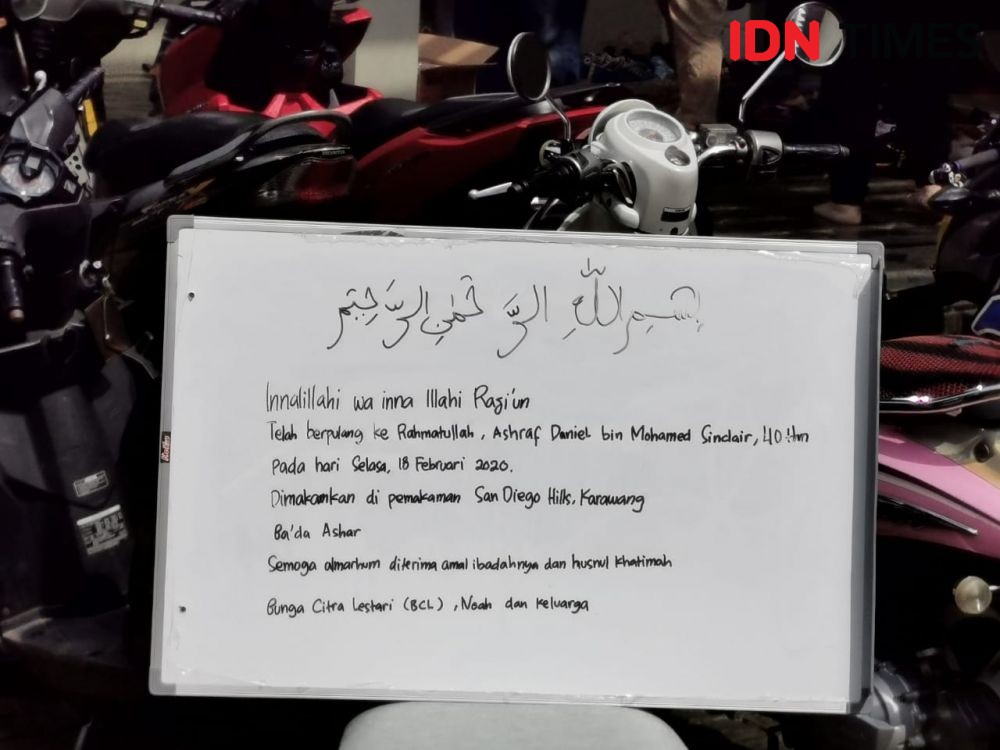 IDN TIMES
بِسْــمِ اللّٰهِ الرَّحْمٰنِ الرَّحِيْمِ
Innalillahi wa inna Illahi Razi'un
Telah berpulang ke Rahmatullah, Ashraf Daniel bin Mohamed Sinclair, 40 thn
Pada hari Selasa, 18 Februari 2020.
Dimakamkan di pemakaman San Diego Hills, Karawang
Ba'da Ashar
Semoga almarhum diterima amal ibadahnya dan husnul khatimah
Bunga Citra Lestari (BCL), Noah dan keluarga